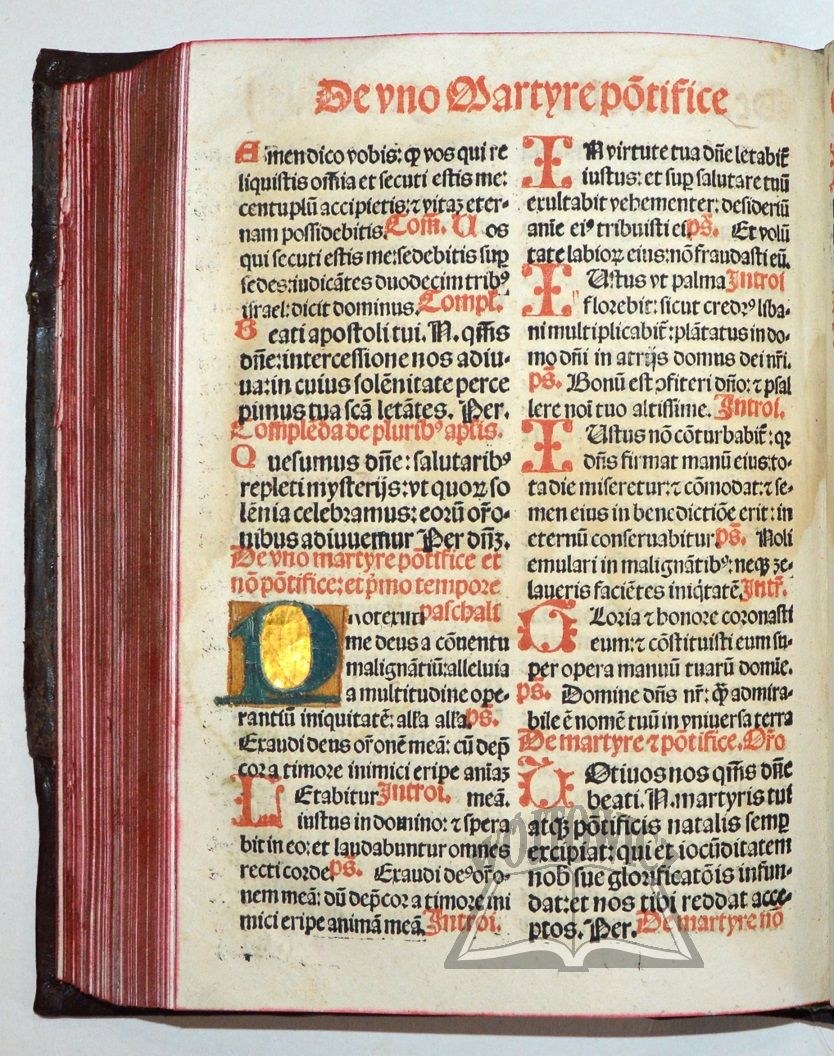 De vno Martyre põtifice
Amen dico vobis: ꝙ vos qui re
liquistis om̃ia et secuti estis me:
centuplũ accipietis: ⁊ vitaꝫ eter-
nam possidebitis. Com̃. Uos
qui secuti estis me: sedebitis suꝑ
sedes: iudicãtes duodecim tribꝰ
israel: dicit dominus. Compl̃.
Beati apostoli tui. N. qm̃s
dñe: intercessione nos adiu-
ua: in cuius solẽnitate perce
pimus tua scã letãtes. Per.
Complẽda de pluribꝰ apl̃is.
Quesumus dñe: salutaribꝰ
repleti mysterijs: vt quoꝝ so
lẽnia celebramus: eorũ or̃o-
nibus adiuuemur Per dñꝫ.
De vno martyre põtifice et
nõ põtifice: et p̃mo tempore
paschali
Protexisti
me deus a cõuentu
malignãtiũ: alleluia
a multitudine ope-
rantiũ iniquitatẽ: all'a all'a. ps̃.
Exaudi deus or̃onẽ meã: cũ dep̃
cor a timore inimici eripe aniaꝫ
meã. Introi.
Letabitur
iustus in domino: ⁊ spera
bit in eo: et laudabuntur omnes
recti corde. ps̃. Exaudi deꝰ or̃o-
nem meã: dũ dep̃cor a timore ini
mici eripe animã meã. Introi.
IN virtute tua dñe letabit̃
iustus: et suꝑ salutare tuũ
exultabit vehementer: desideriũ
anie eiꝰ tribuisti ei. ps̃. Et volũ
tate labioꝝ eius: nõ fraudasti eũ.
Introi
IUstus vt palma
florebit: sicut cedrꝰ liba-
ni multiplicabit̃: plãtatus in do-
mo dñi in atrijs domus dei nr̃i.
ps̃. Bonũ est ꝓfiteri dño: ⁊ psal
lere noĩ tuo altissime. Introi.
IUstus nõ cõturbabit̃: qꝛ
dñs firmat manũ eius: to-
ta die miseretur: ⁊ cõmodat: ⁊ se-
men eius in benedictiõe erit: in
eternũ conseruabitur. ps̃. Noli
emulari in malignãtibꝰ: neqꝫ ze-
laueris faciẽtes iniq̃tatẽ. Intr̃.
GLoria ⁊ honore coronasti
eum: ⁊ cõstituisti eum su-
per opera manuũ tuarũ domie.
ps̃. Domine dñs nr̃: ꝙ̃ admira-
bile ẽ nomẽ tuũ in vniuersa terra
De martyre ⁊ põtifice. Or̃o
UOtiuos nos qm̃s dñe
beati. N. martyris tui
atqꝫ põtificis natalis semꝑ
excipiat: qui et iocũditatem
nob̃ sue glorificatõis infun-
dat: et nos tibi reddat acce-
ptos. Per. De martyre nõ